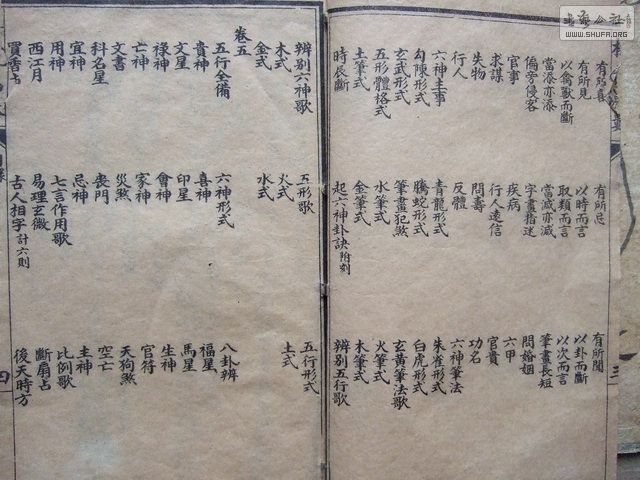 有所喜 有所忌 有所聞
有所見 以時而言 以卦而斷
以禽獸而斷 取類而言 以次而言
當添亦添 當減亦減 筆畫長短
偏旁侵客 字畫指迷 問婚姻
官事 疾病 六甲
求謀 行人遠信 官貴
失物 問壽 功名
行人 反體 六神筆法
六神主事 青龍形式 朱雀形式
勾陳形式 螣蛇形式 白虎形式
玄武形式 筆畫犯煞 玄黃筆法歌
五形體格式 水筆式 火筆式
土筆式 金筆式 木筆式
時辰斷 起六神卦訣附刻 辨別五行歌
三
辨別六神歌 五形歌 五行形式
木式 火式 土式
金式 水式
卷五
五行全備 六神形式 八卦辨
貴神 喜神 福星
文星 印星 馬星
祿神 會神 生神
亡神 家神 官符
文書 災煞 天狗煞
科名星 喪門 空亡
宜神 忌神 主神
用神 七言作用歌 比例歌
西江月 易理玄微 斷扇占
占 古人相字計六則 後天時方
四
WWW.SHUFA.ORG